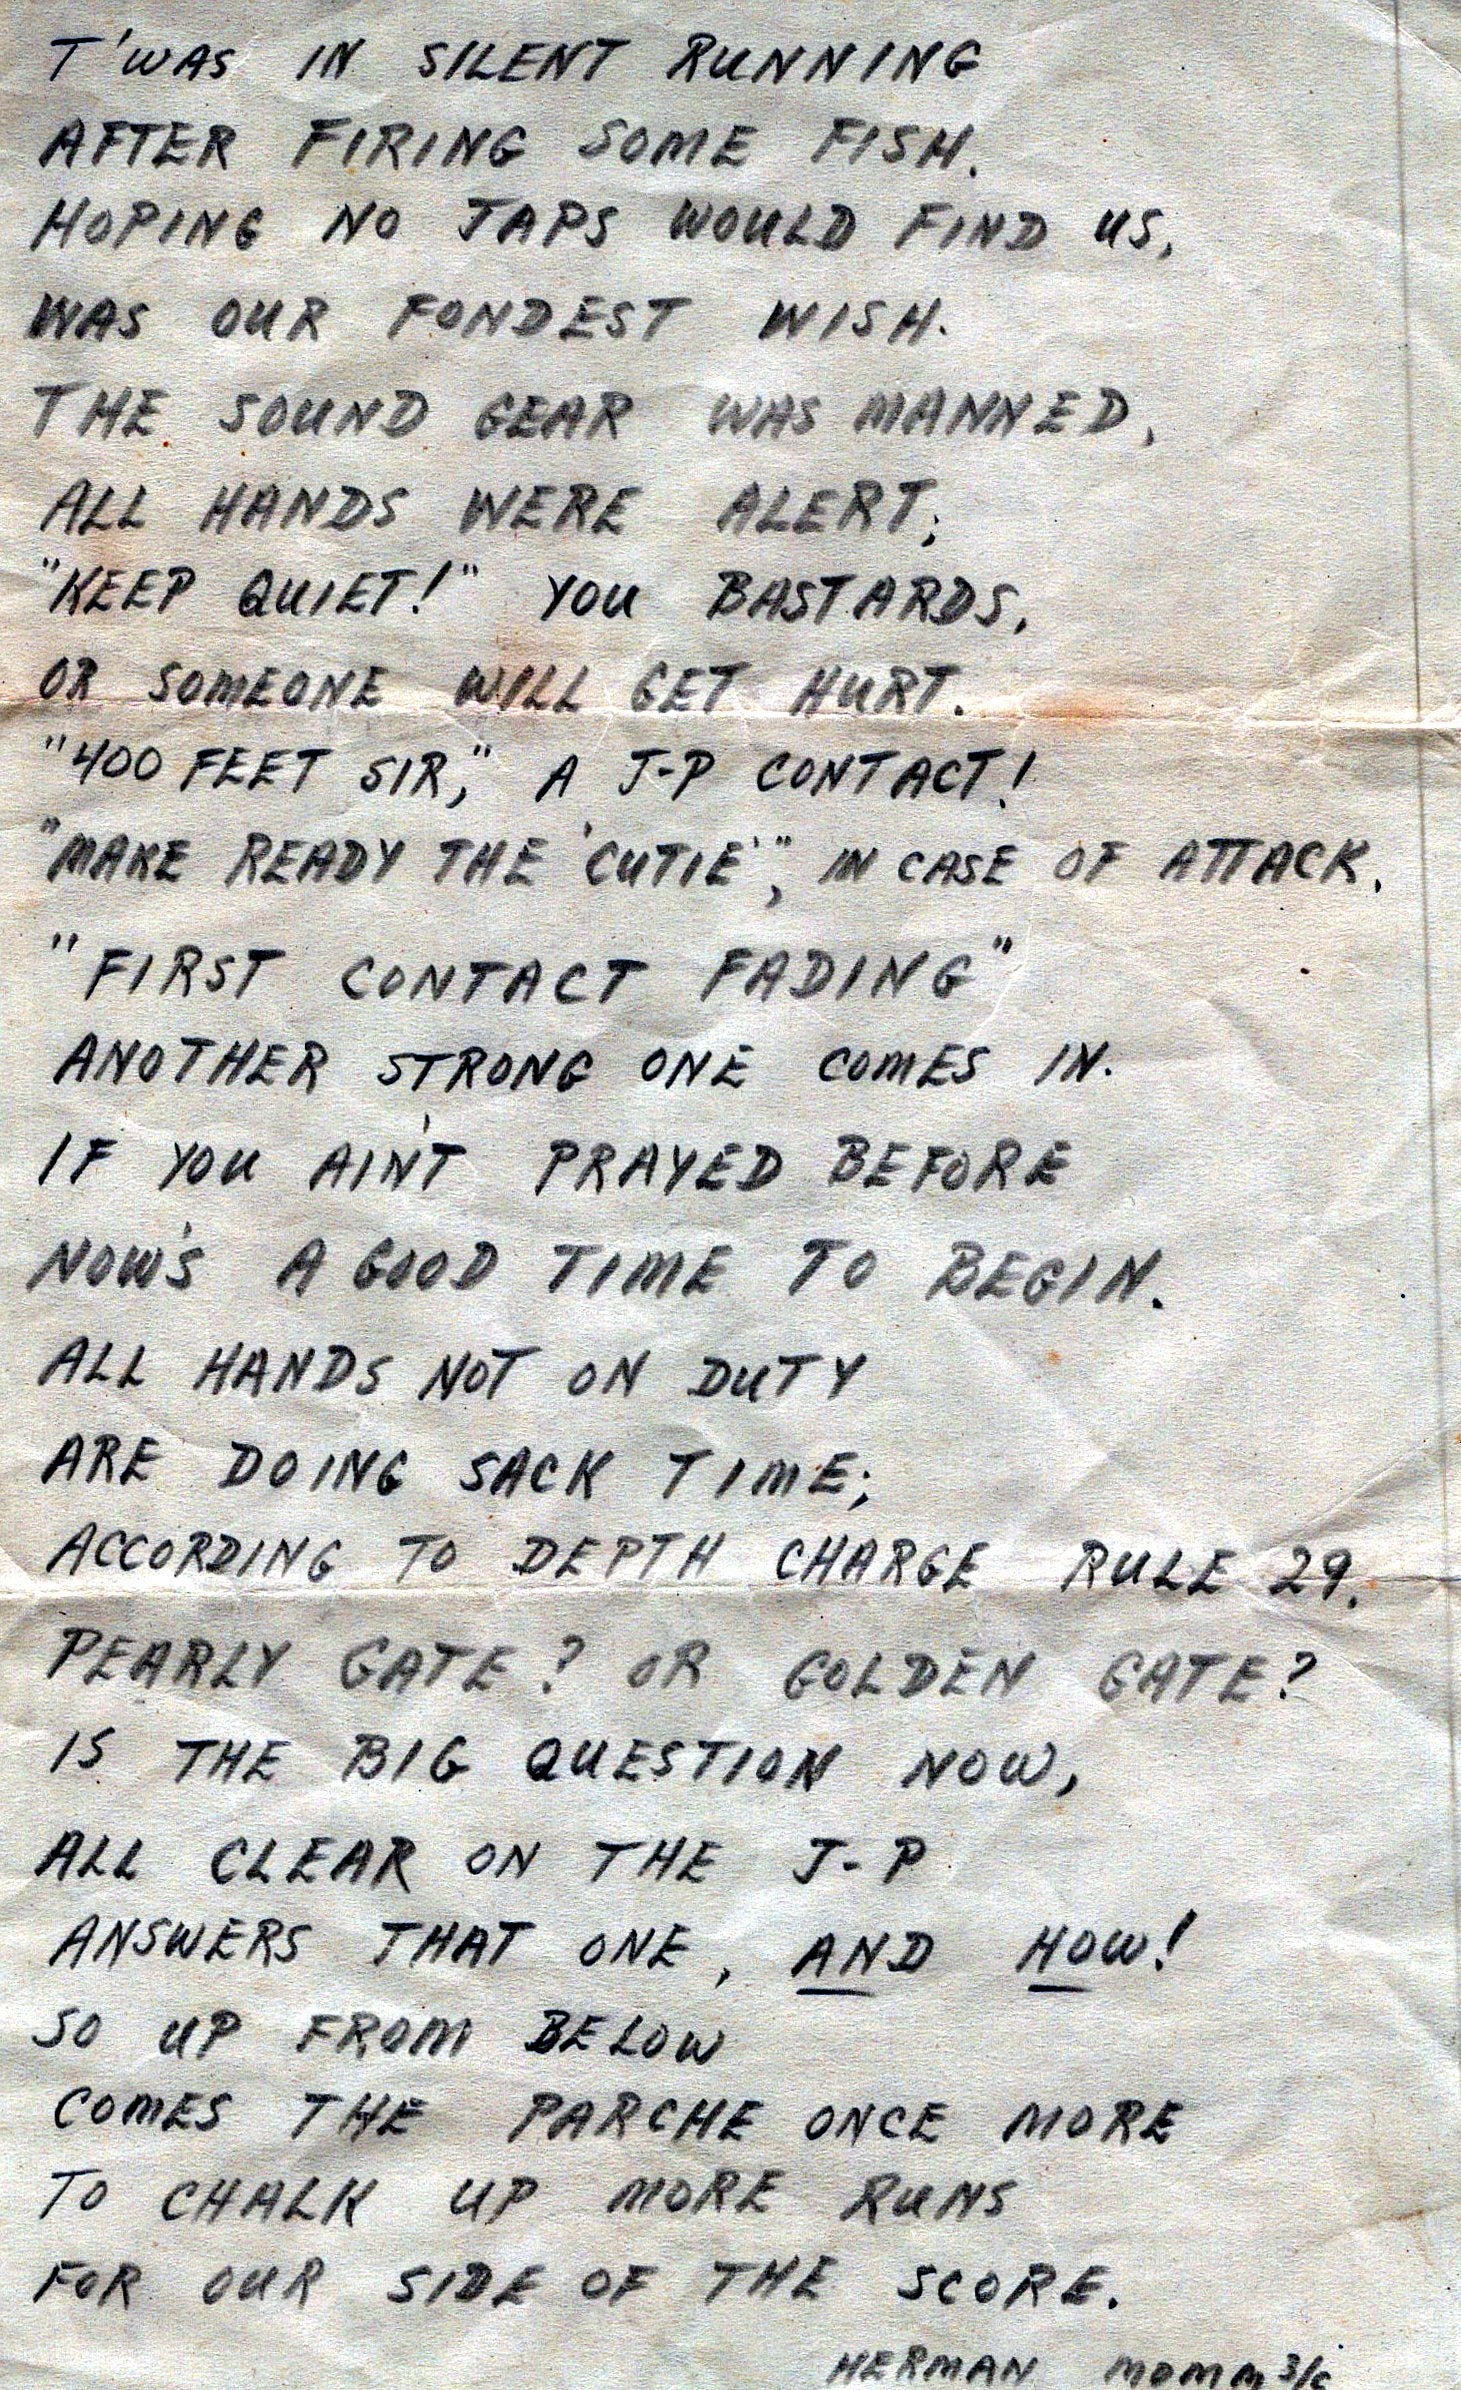 T'WAS IN SILENT RUNNING
AFTER FIRING SOME FISH.
HOPING NO JAPS WOULD FIND US,
WAS OUR FONDEST WISH.
THE SOUND GEAR WAS MANNED,
ALL HANDS WERE ALERT;
"KEEP QUIET!" YOU BASTARDS,
OR SOMEONE WILL GET HURT.
"400 FEET SIR," A J-P CONTACT!
"MAKE READY THE 'CUTIE'", IN CASE OF ATTACK.
"FIRST CONTACT FADING"
ANOTHER STRONG ONE COMES IN.
IF YOU AIN'T PRAYED BEFORE
NOW'S A GOOD TIME TO BEGIN.
ALL HANDS NOT ON DUTY
ARE DOING SACK TIME;
ACCORDING TO DEPTH CHARGE RULE 29.
PEARLY GATE? OR GOLDEN GATE?
IS THE BIG QUESTION NOW,
ALL CLEAR ON THE J-P
ANSWERS THAT ONE, AND HOW!
SO UP FROM BELOW
COMES THE PARCHE ONCE MORE
TO CHALK UP MORE RUNS
FOR OUR SIDE OF THE SCORE.
HERMAN MOMM 3/c